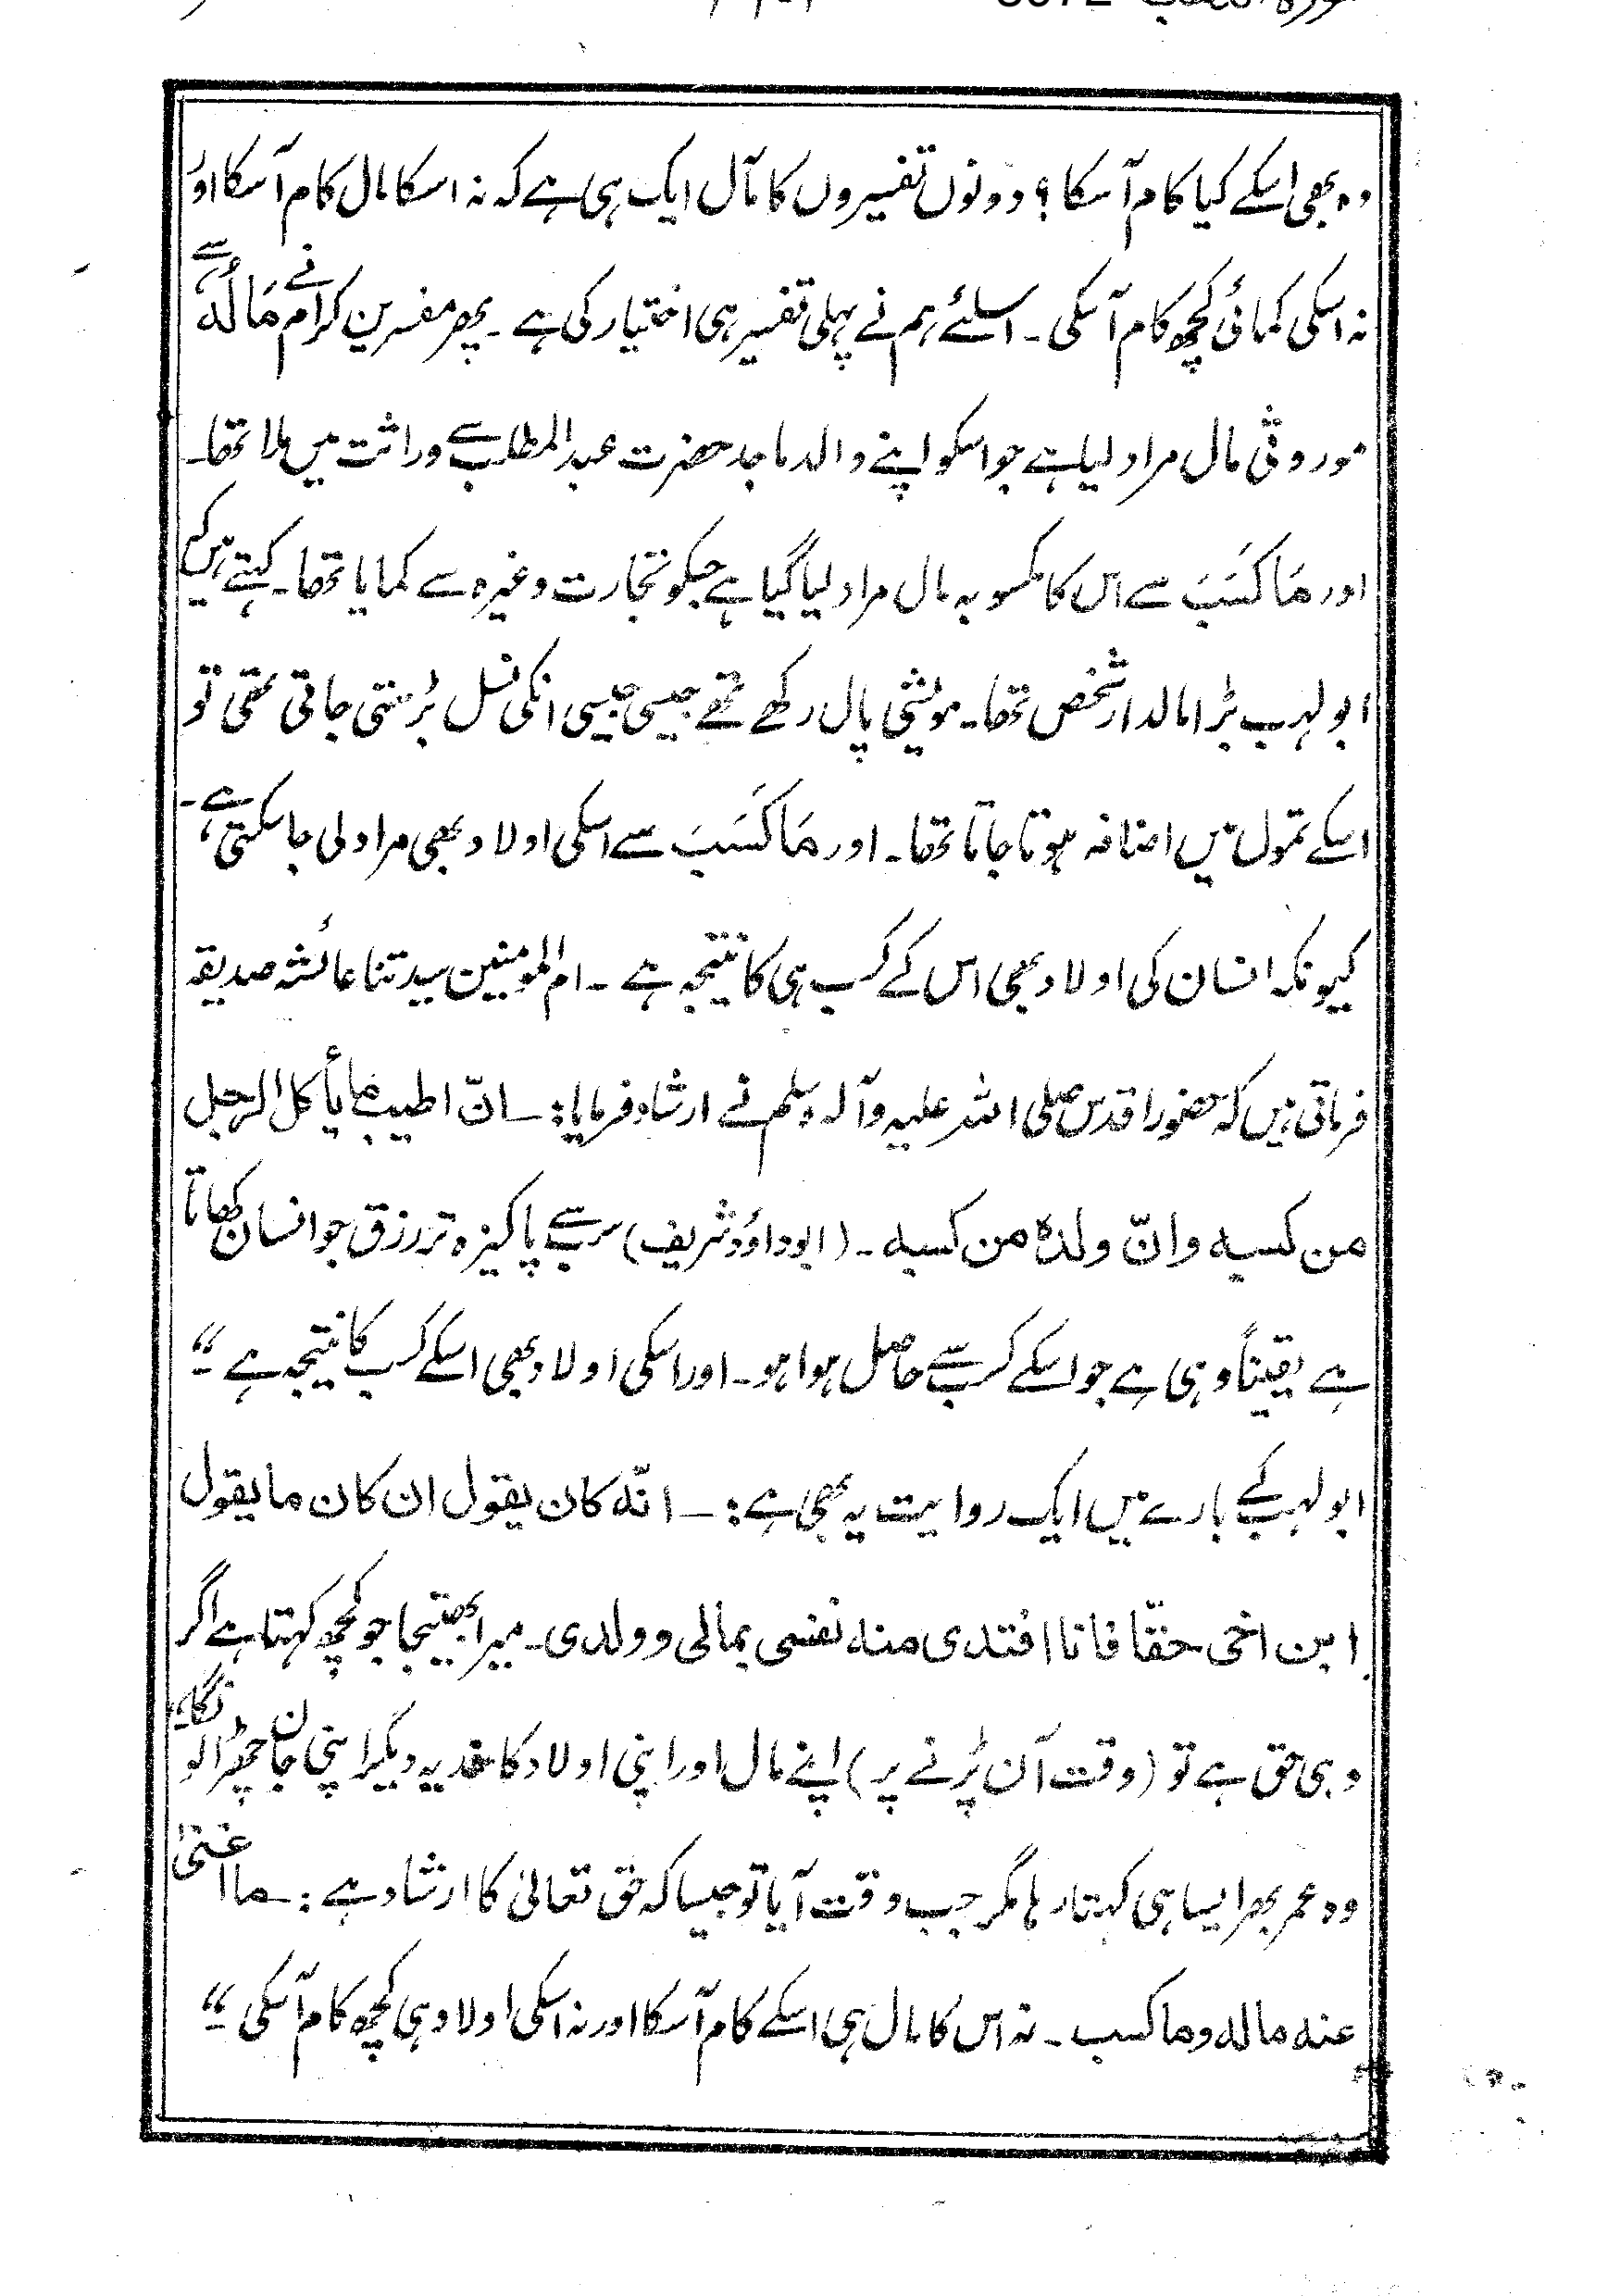 وہ بھی اسکے کیا کام آسکا؟ دونوں تفسیروں کا مآل ایک ہی ہے کہ نہ اسکا مال کام آسکا اور
نہ اسکی کمائی کچھ کام آسکی۔ اسلئے ہم نے پہلی تفسیر ہی اختیار کی ہے۔ پھر مفسرین کرام نے مَالُهٗ سے
موروثی مال مراد لیا ہے جو اسکو اپنے والد ماجد حضرت عبدالمطلب سے وراثت میں ملا تھا۔
اور مَا كَسَبَ سے اس کا مکسوبہ مال مراد لیا گیا ہے جسکو تجارت وغیرہ سے کمایا تھا۔ کہتے ہیں کہ
ابولہب بڑا مالدار شخص تھا۔ مویشی پال رکھے تھے جیسی جیسی انکی نسل بڑھتی جاتی تھی تو
اسکے تمول میں اضافہ ہوتا جاتا تھا۔ اور مَا كَسَبَ سے اسکی اولاد بھی مراد لی جاسکتی ہے۔
کیونکہ انسان کی اولاد بھی اس کے کسب ہی کا نتیجہ ہے۔ ام المومنین سیدتنا عائشہ صدیقہ
فرماتی ہیں کہ حضور اقدس صلی اللہ علیہ وآلہ وسلم نے ارشاد فرمایا:۔ انّ اطیب ما یأکل الرجل
من کسبہ وانّ ولدہ من کسبہ۔ (ابوداؤد شریف) سب سے پاکیزہ تر رزق جو انسان کھاتا
ہے یقیناً وہی ہے جو اسکے کسب سے حاصل ہوا ہو۔ اور اسکی اولاد بھی اسکے کسب کا نتیجہ ہے۔“
ابولہب کے بارے میں ایک روایت یہ بھی ہے:۔ انّہ کان یقول ان کان ما یقول
ابن اخی حقّا فانا افتدی منہ نفسی بمالی و ولدی۔ میرا بھتیجا جو کچھ کہتا ہے اگر
وہی حق ہے تو (وقت آن پڑنے پر) اپنے مال اور اپنی اولاد کا فدیہ دیکر اپنی جان چھڑالونگا۔
وہ عمر بھر ایسا ہی کہتا رہا مگر جب وقت آیا تو جیسا کہ حق تعالیٰ کا ارشاد ہے:۔ ما اغنیٰ
عنہ مالہ وما کسب۔ نہ اس کا مال ہی اسکے کام آسکا اور نہ اسکی اولاد ہی کچھ کام آسکی۔“